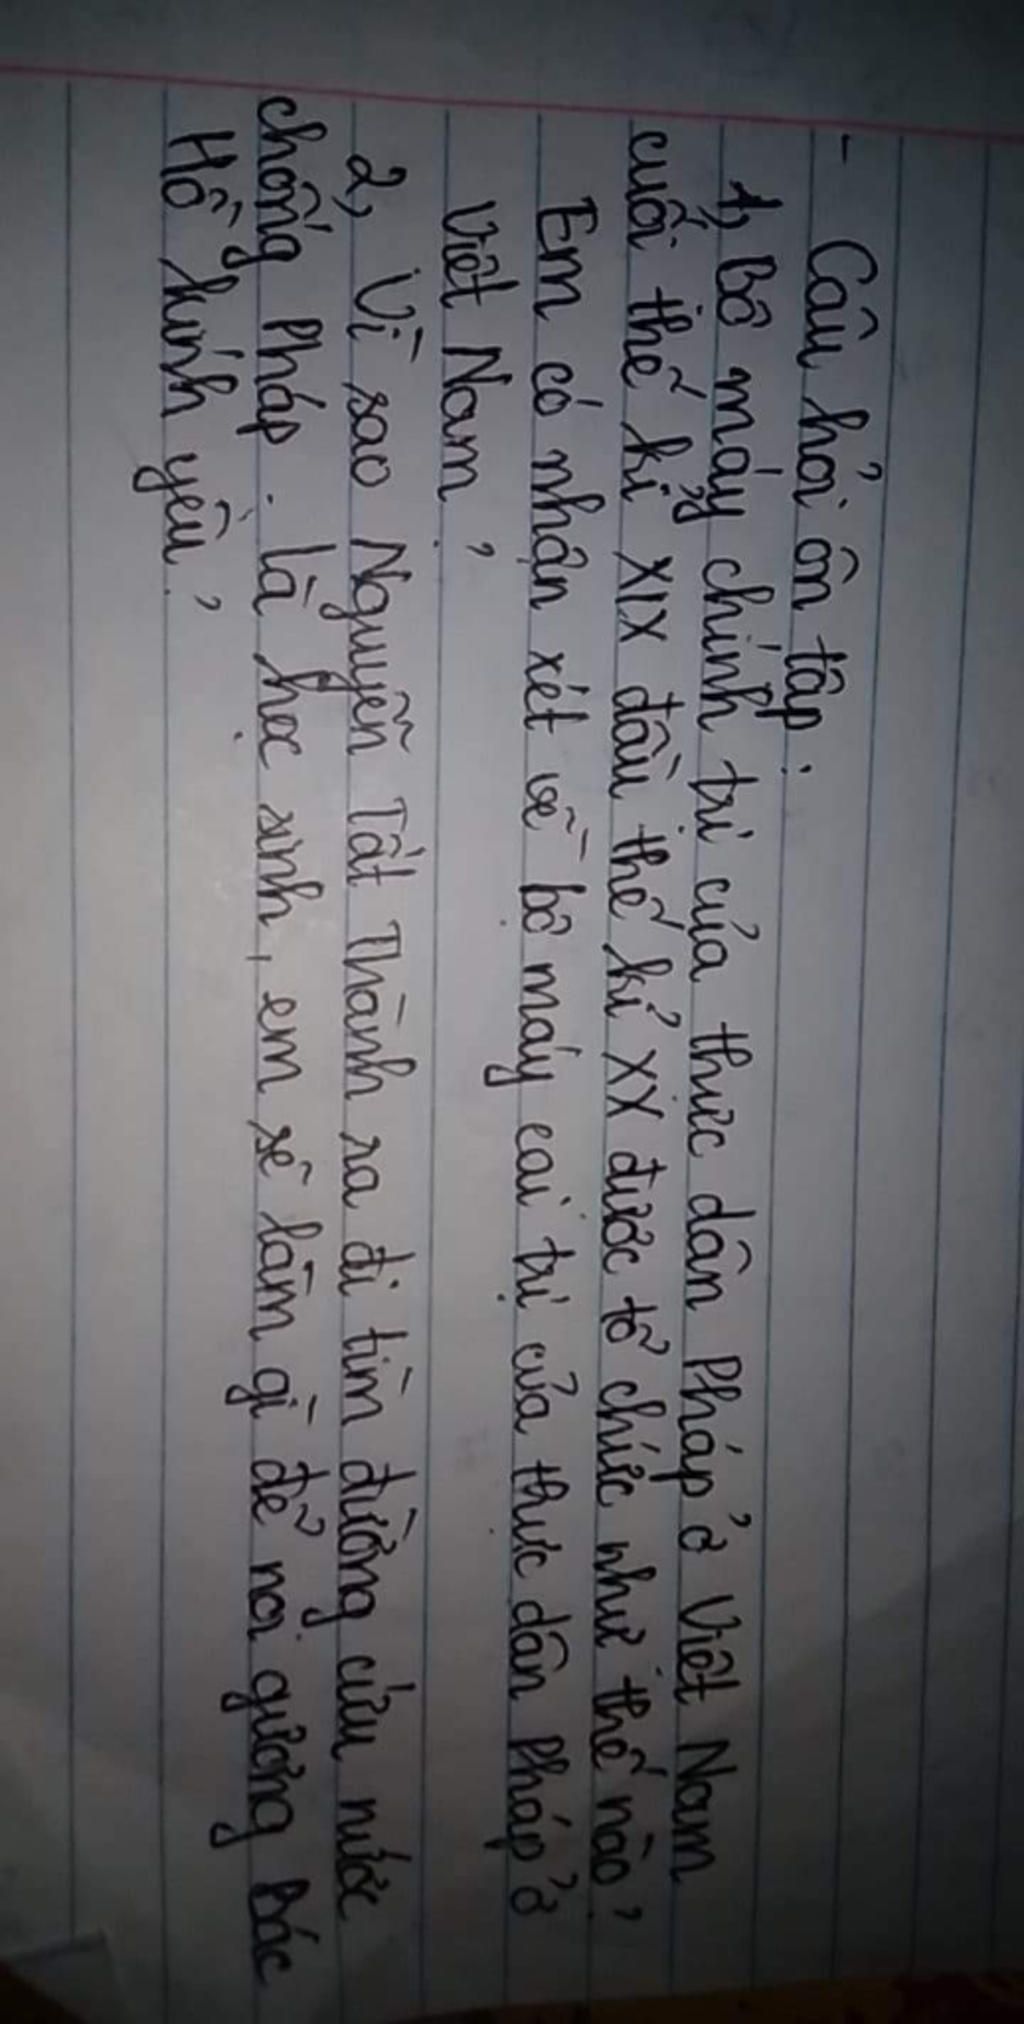 - Câu hỏi ôn tập:
1, Bộ máy chính trị của thực dân Pháp ở Việt Nam
cuối thế kỉ XIX đầu thế kỉ XX được tổ chức như thế nào?
Em có nhận xét về bộ máy cai trị của thực dân Pháp ở
Việt Nam?
2, Vì sao Nguyễn Tất Thành ra đi tìm đường cứu nước
chống Pháp. Là học sinh, em sẽ làm gì để noi gương Bác
Hồ kính yêu?